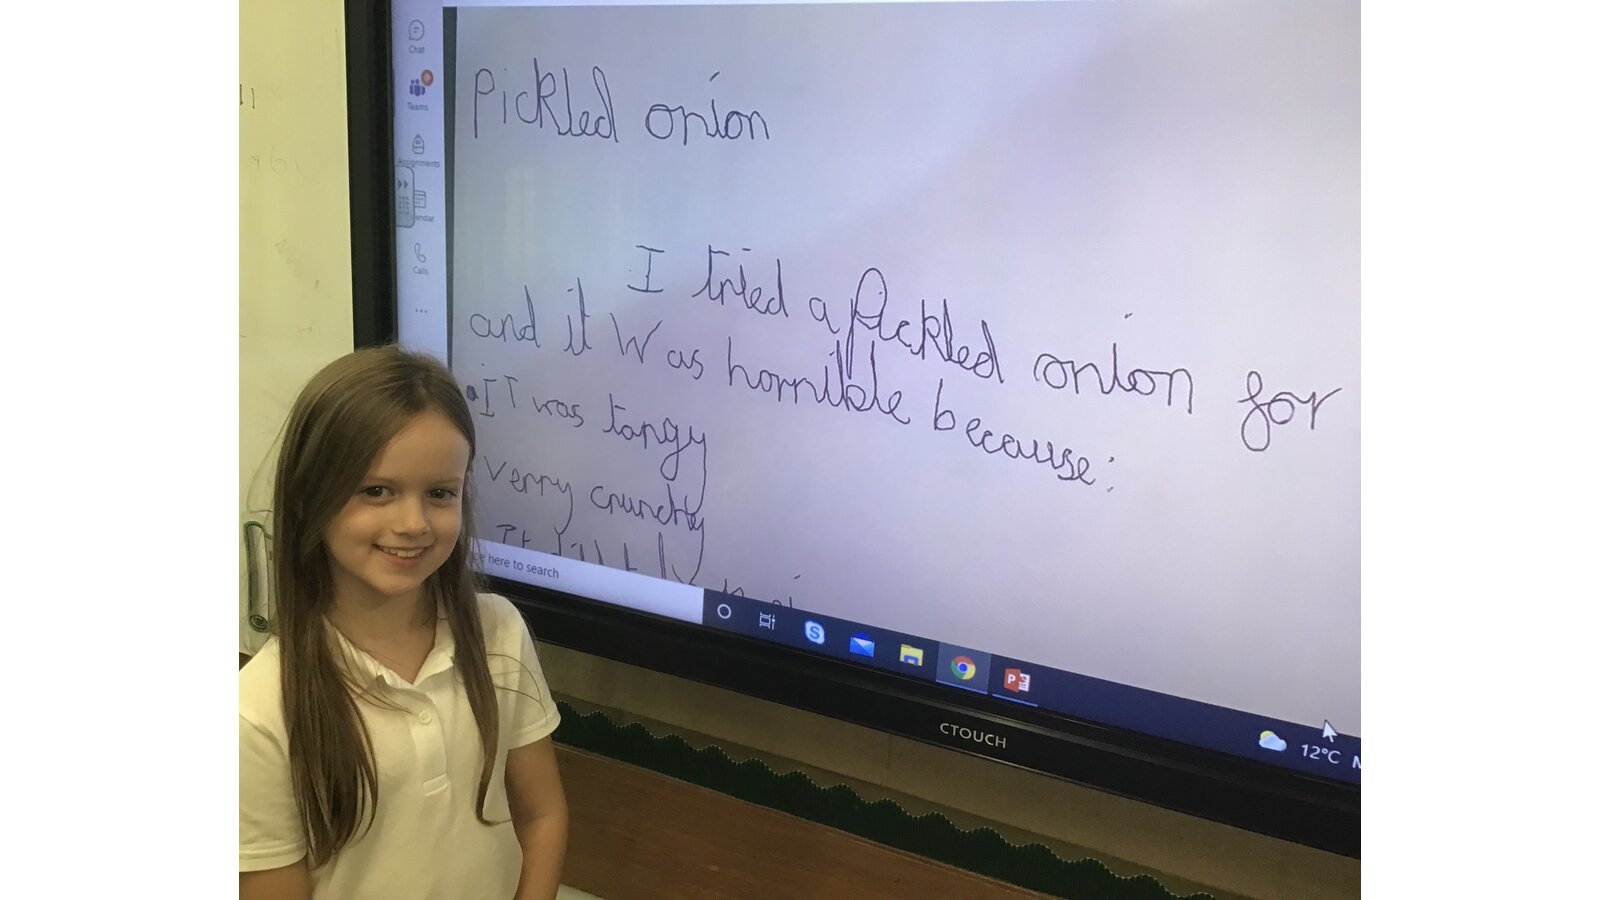 Chat
Teams
Assignments
endar
Calls
Pickled onion
I tried a Pickled onion for
and it Was horrible because:
• IT was tangy
verry crunchy
It
pe here to search
CTOUCH
12°C